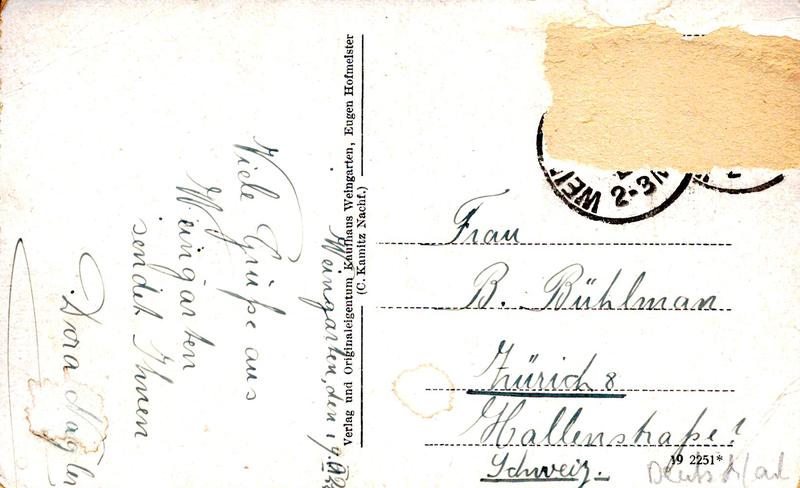 Weingarten, den
Viele Grüße aus
Weingarten
sendet Ihnen
Dora
Verlag und Originaleigentum Kaufhaus Weingarten, Eugen Hofmeister
(C. Kamitz Nachf.)
WEI
2-3N
Frau
B. Bühlman
Zürich 8
Hallenstraße
Schweiz.
19 2251*